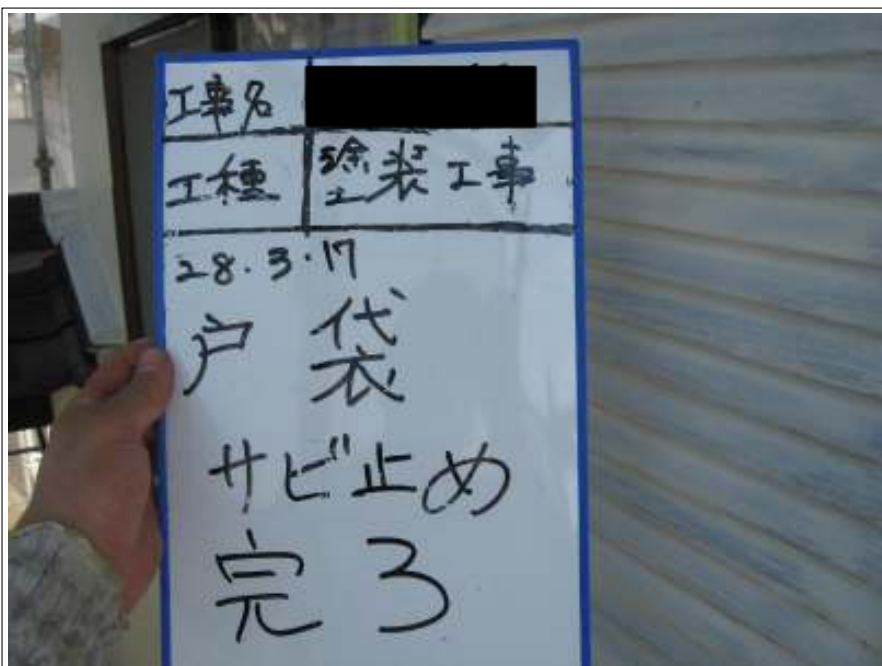 工事名
工種 塗装工事
28.3.17
戸袋
サビ止め
完了